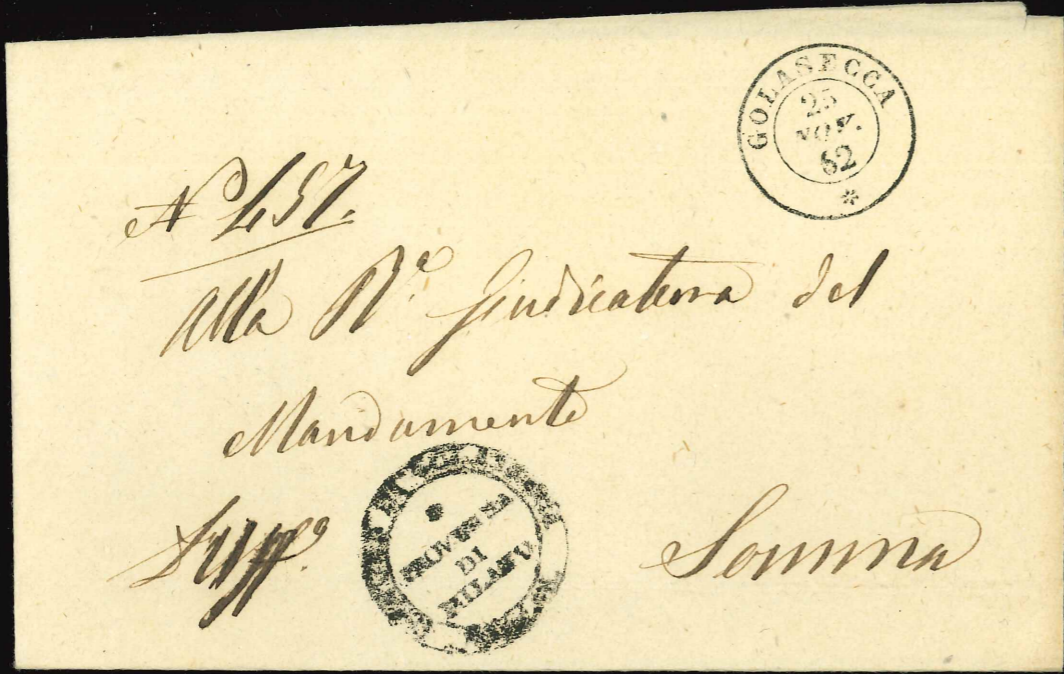 GOLASECCA
25
NOV.
62
*
N° 457.
Alla R.ª Giudicatura del
Mandamento
Somma
PROVINCIA
DI
MILANO